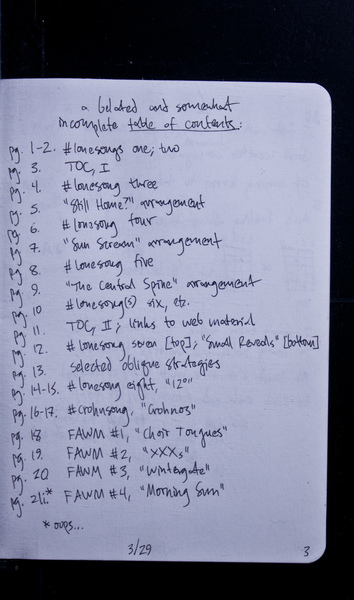 a belated and somewhat
incomplete table of contents:
pg. 1-2. #lonesongs one; two
pg. 3. TOC, I
pg. 4. #lonesong three
pg. 5. "Still Home?" arrangement
pg. 6. #lonesong four
pg. 7. "Sun Scream" arrangement
pg. 8. #lonesong five
pg. 9. "The Central Spine" arrangement
pg. 10 #lonesong(s) six, etc.
pg. 11. TOC, II; links to web material
pg. 12. #lonesong seven [top]; "Small Reveals" [bottom]
pg. 13. selected oblique strategies
pg. 14-15. #lonesong eight, "12°"
pg. 16-17. #crohnsong, "Crohnos"
pg. 18 FAWM #1, "Choir Tongues"
pg. 19. FAWM #2, "XXXs"
pg. 20 FAWM #3, "Wintergate"
pg. 21i.* FAWM #4, "Morning Sun"
* oops...
3/29 3